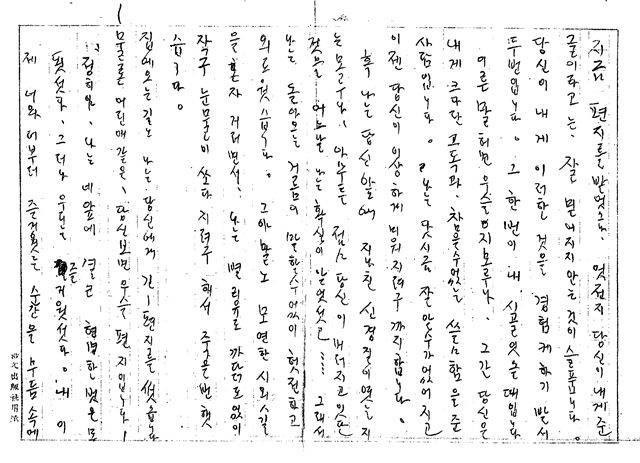 지금 편지를 받엇스나 엇전지 당신이 내게 준
글이라고는 잘 믿어지지 안는 것이 슬품니다.
당신이 내게 이러한 것을 경험케하기 발서
두번입니다. 그 한번이 내 시골잇든 때입니다.
이른 말 허면 우슬지 모루나 그간 당신은
내게 크다란 고독과 참을수없는 쓸쓸함을 준
사람입니다. 나는 닷시금 잘 알수가없어지고
이젠 당신이 이상하게 미워지려구까지 합니다.
혹 나는 당신 앞에 지나친 신경질이엿는지
는 모르나 아무튼 점점 당신이 머러지고 잇단
것을 어느날 나는 확실이 알엇섯고..... 그래서
나는 돌아오는 거름이 말할수없이 헛전하고
외로웟습니다. 그야말노 모연한 시욋길
을 혼자 거러면서 나는 별리유도 까닭도없이
작구 눈물이 쏘다지려구 해서 죽을번햇
습니다.
집에오는길노 나는 당신에게 긴 편지를 썻습니다.
물론 어린애같은, 당신보면 우슬 편지입니다
"정히야, 나는 네앞에 결코 현명한 벗은 못
됫섯다. 그러나 우리는 즐거웟섯다. 내 이
제 너와 더부러 즐거웟든 순간을 무듬 속에